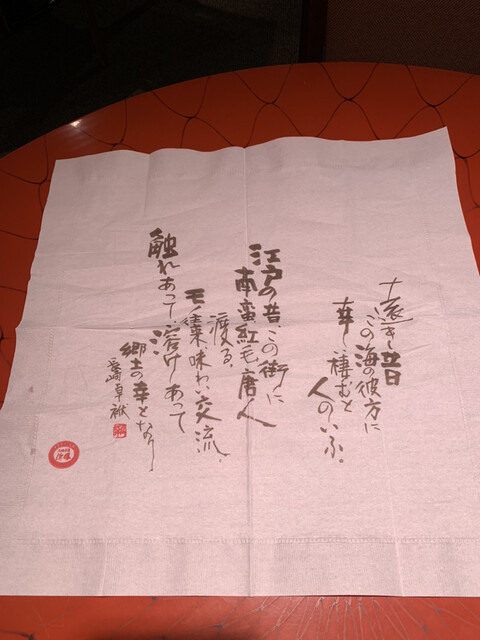 遠き昔
この海の彼方に
幸し棲むと
人のいふ。
江戸の昔、この街に
南蛮紅毛唐人
渡る。
モノ集味わい交流、
触れあって溶けあって
郷土の幸となり
長崎卓袱